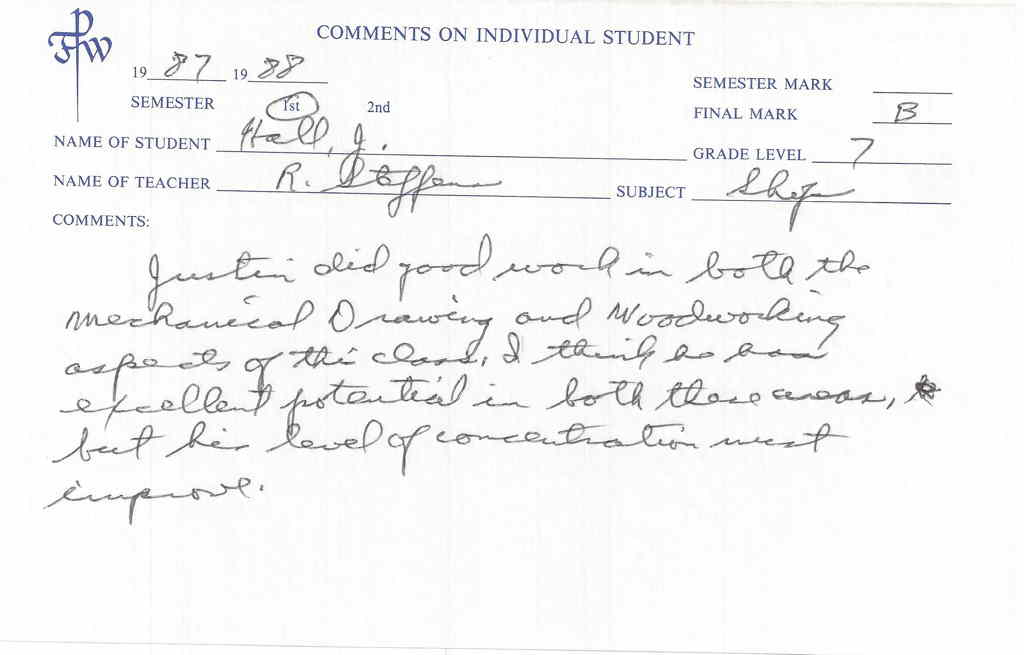 FPW
COMMENTS ON INDIVIDUAL STUDENT
19 87 19 88
SEMESTER MARK
SEMESTER 1st 2nd
FINAL MARK B
NAME OF STUDENT Hall, J.
GRADE LEVEL 7
NAME OF TEACHER R. Steffens
SUBJECT Shop
COMMENTS:
Justin did good work in both the
Mechanical Drawing and Woodworking
aspects of the class, I think he has
excellent potential in both these areas,
but his level of concentration must
improve.